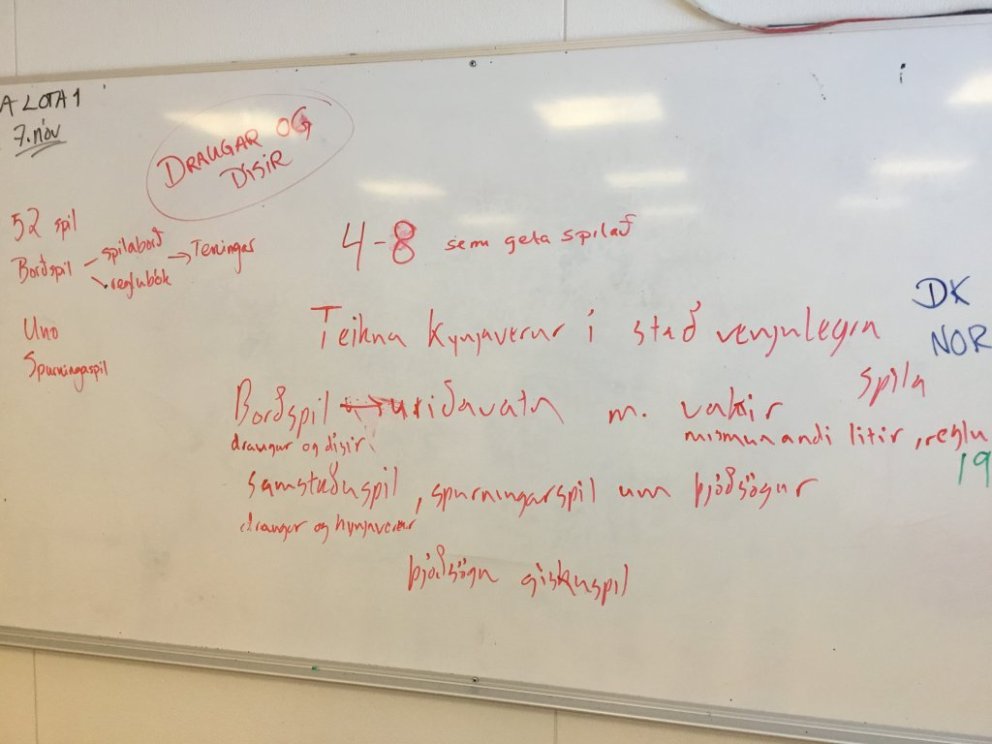 A LOTA 1
7. nóv
DRAUGAR OG
DÍSIR
52 spil
Borðspil
spilaborð
reglubók
→ Teningar
Uno
Spurningaspil
4-8 sem geta spilað
DK
NOR
Teikna kynjaverur í stað venjulegra
spila
Borðspil m.
draugar og dísir
mismunandi litir, reglu
19
samstæðuspil, spurningarspil um þjóðsögur
draugar og kynjaverur
þjóðsögu giskuspil